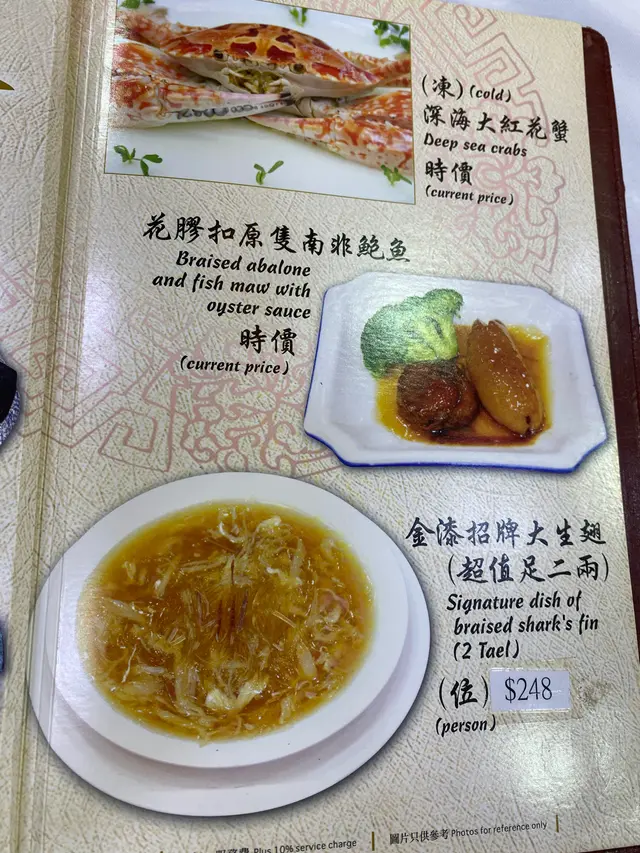 (凍)(cold)
深海大紅花蟹
Deep sea crabs
時價
(current price)
花膠扣原隻南非鮑魚
Braised abalone
and fish maw with
oyster sauce
時價
(current price)
金漆招牌大生翅
(超值足二兩)
Signature dish of
braised shark's fin
(2 Tael)
(位) $248
(person)
服務費 Plus 10% service charge
圖片只供參考 Photos for reference only